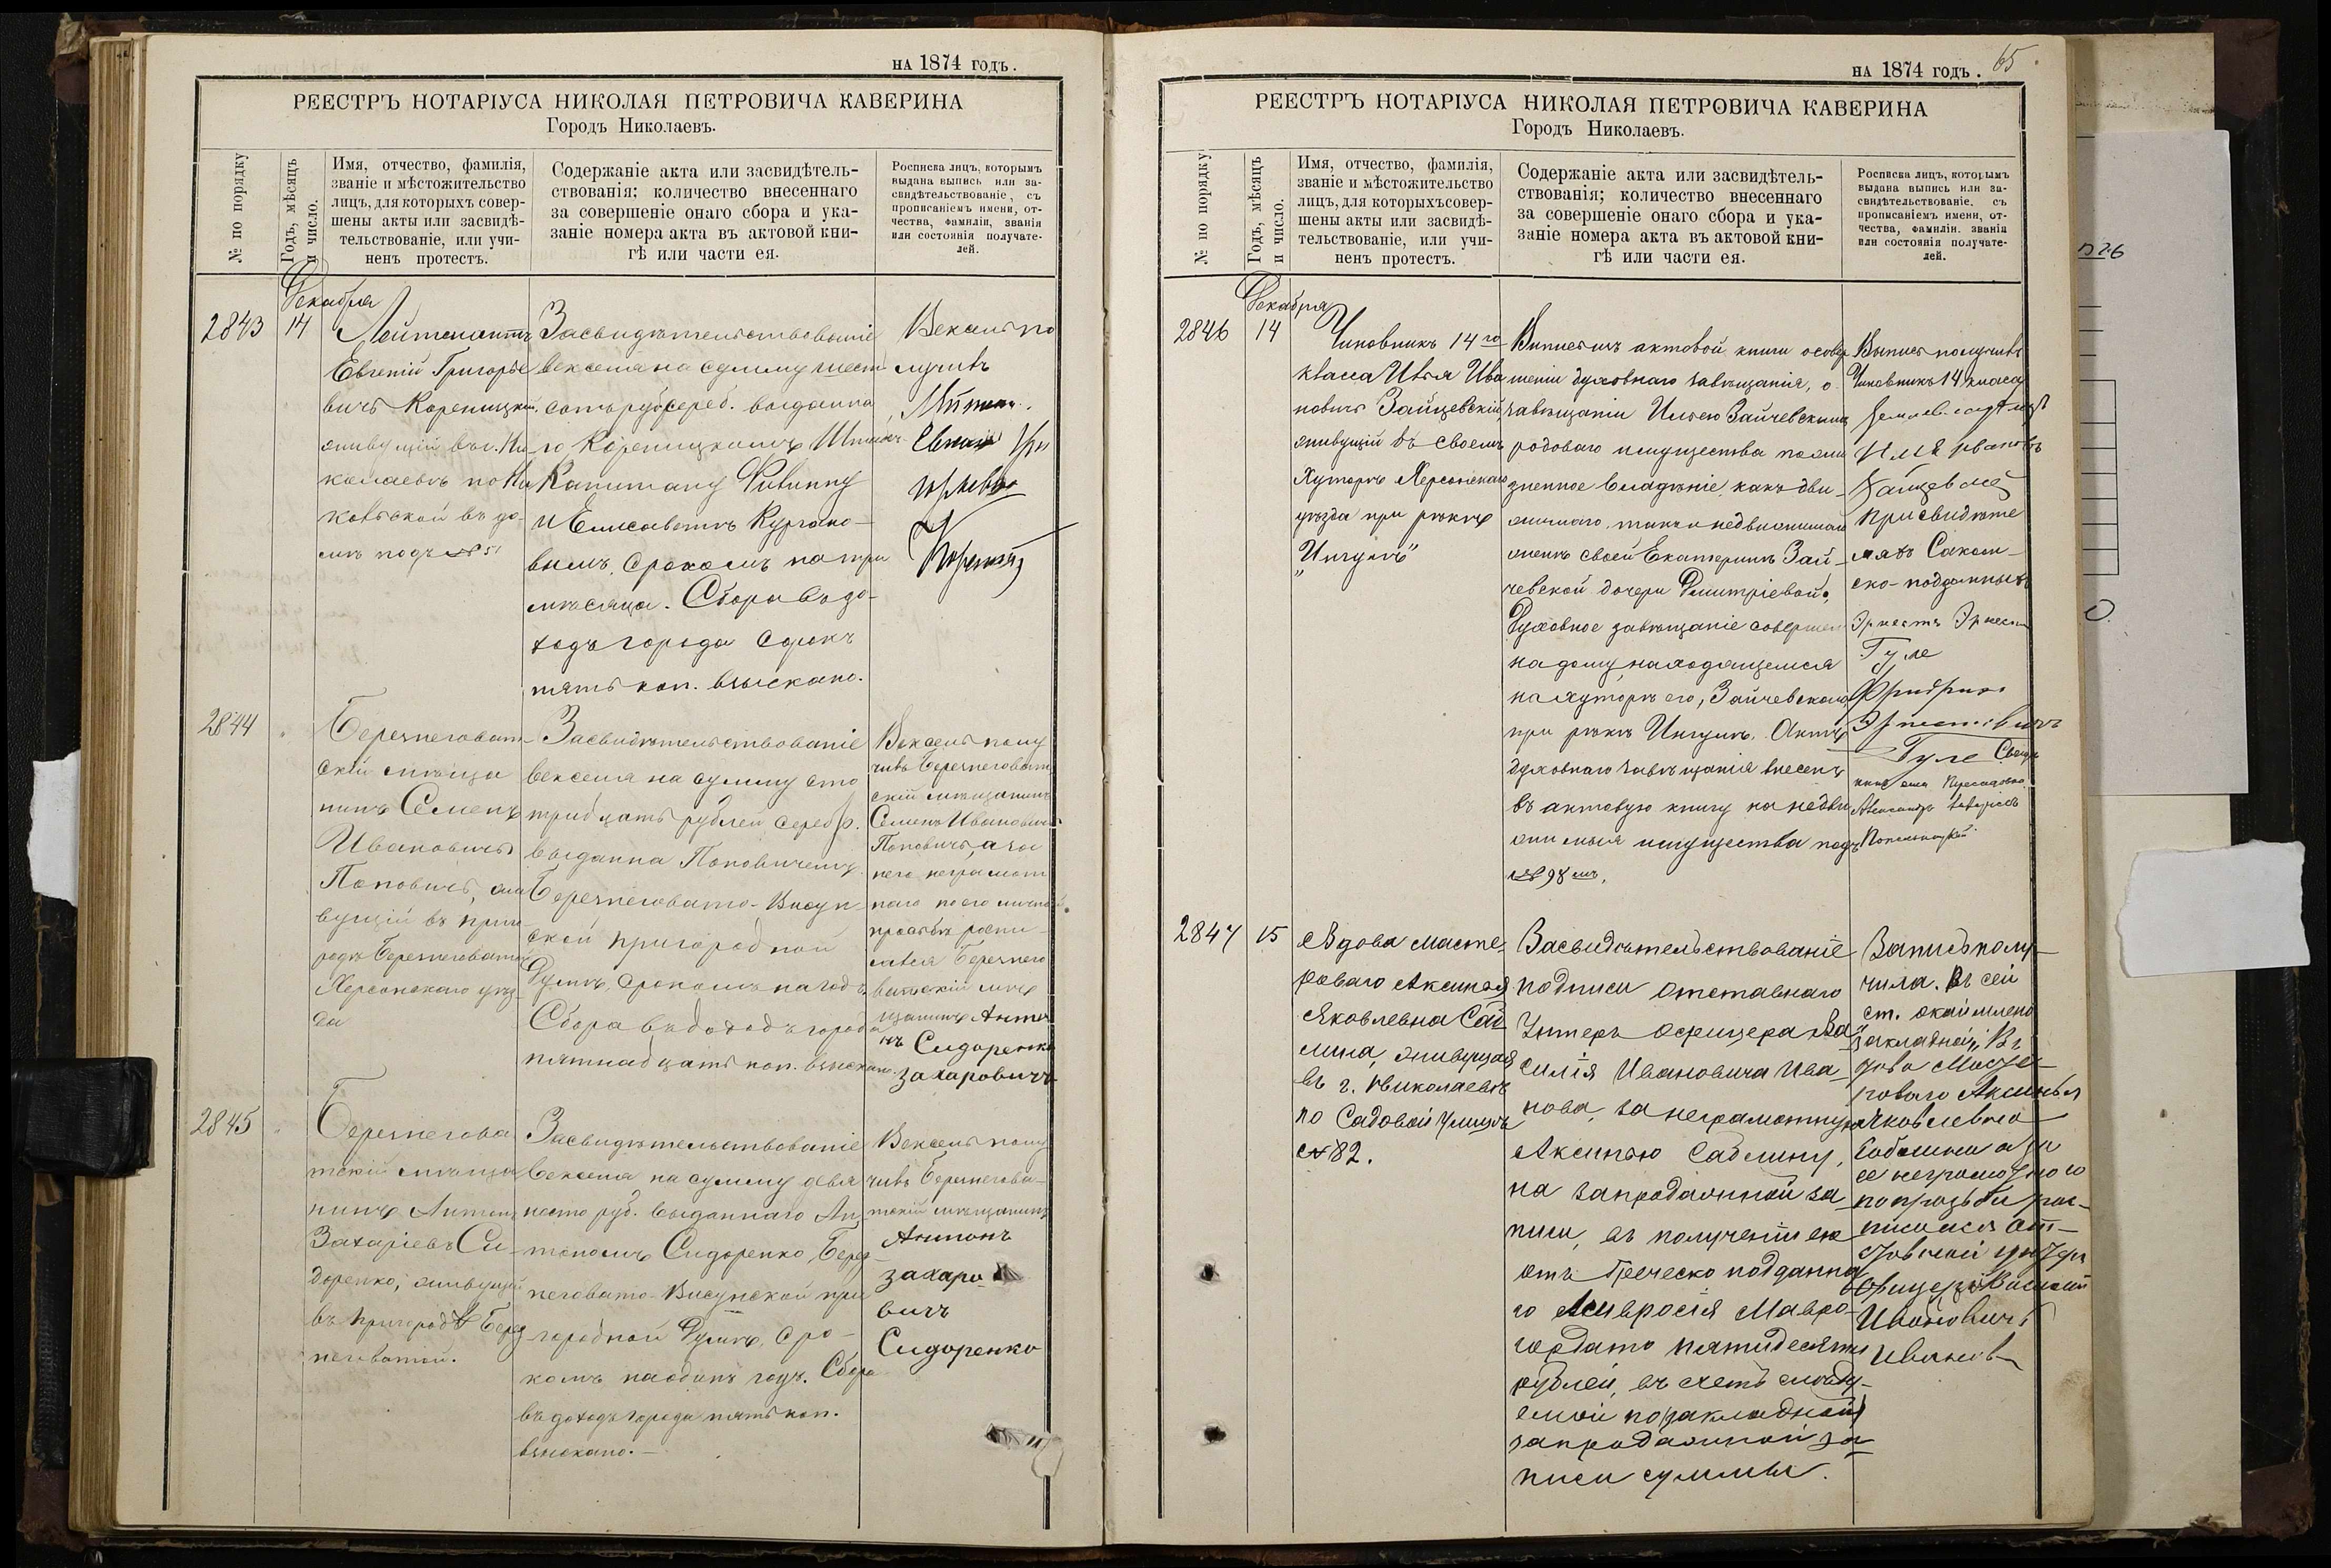 на 1874 годъ.
РЕЕСТРЪ НОТАРІУСА НИКОЛАЯ ПЕТРОВИЧА КАВЕРИНА
Городъ Николаевъ.
№ по порядку
Годъ, мѣсяцъ
и число.
Имя, отчество, фамилія,
званіе и мѣстожительство
лицъ, для которыхъ совер-
шены акты или засвидѣ-
тельствованіе, или учи-
ненъ протестъ.
Содержаніе акта или засвидѣтель-
ствованія; количество внесеннаго
за совершеніе онаго сбора и ука-
заніе номера акта въ актовой кни-
гѣ или части ея.
Росписка лицъ, которымъ
выдана выпись или за-
свидѣтельствованіе, съ
прописаніемъ имени, от-
чества, фамиліи, званія
или состоянія получате-
лей.
Декабря
2843
14
Лейтенантъ
Евгеній Григорье
вичъ
живущій въ г. Ни
колаевѣ по Ни
кольской въ до-
мѣ подъ № 51
Засвидѣтельствованіе
векселя на сумму шест
сотъ руб. сереб. выданна
го
Капитану
и Елисаветѣ Кургано-
вымъ, срокомъ на три
мѣсяца. Сбора въ до-
ходъ города сорокъ
пять коп. взыскано.
Вексель по
лучилъ
Евгеній Гри
горьевъ
2844
Березнеговат-
скій мѣща
нинъ Семенъ
Ивановичъ
Поповичъ, жи
вущій въ приго
родѣ Березнеговатой
Херсонскаго уѣз-
да
Засвидѣтельствованіе
векселя на сумму сто
тридцать рублей серебр.
выданна Поповичемъ
Березнеговато-Висун
ской пригородной
Думѣ, срокомъ на годъ.
Сбора въ доходъ города
пятнадцать коп. взыскано.
Вексель полу
чилъ Березнеговат
скій мѣщанинъ
Семенъ Ивановичъ
Поповичъ, а за
него неграмот
наго по его личной
просьбѣ роспи-
сался Березнего
ватскій мѣ
щанинъ Анто
нъ Сидоренко
Захаровичъ
2845
Березнегова
тскій мѣща
нинъ Антонъ
Захаріевъ Си-
доренко, живущій
въ пригородѣ Берез
неговатой.
Засвидѣтельствованіе
векселя на сумму девя
носто руб. выданнаго Ан-
тономъ Сидоренко, Берез-
неговато-Висунской при
городной Думѣ, сро-
комъ на одинъ годъ. Сбора
въ доходъ города пять коп.
взыскано.—
Вексель полу
чилъ Березнегова-
тскій мѣщанинъ
Антонъ
Захаро
вичъ
Сидоренко
на 1874 годъ.
65
РЕЕСТРЪ НОТАРІУСА НИКОЛАЯ ПЕТРОВИЧА КАВЕРИНА
Городъ Николаевъ.
№ по порядку
Годъ, мѣсяцъ
и число.
Имя, отчество, фамилія,
званіе и мѣстожительство
лицъ, для которыхъ совер-
шены акты или засвидѣ-
тельствованіе, или учи-
ненъ протестъ.
Содержаніе акта или засвидѣтель-
ствованія; количество внесеннаго
за совершеніе онаго сбора и ука-
заніе номера акта въ актовой кни-
гѣ или части ея.
Росписка лицъ, которымъ
выдана выпись или за-
свидѣтельствованіе, съ
прописаніемъ имени, от-
чества, фамиліи, званія
или состоянія получате-
лей.
Декабря
2846
14
Чиновникъ 14го
класса Илья Ива
новичъ Зайчевскій,
живущій въ своемъ
хуторѣ Херсонскаго
уѣзда при рѣкѣ
„Ингулѣ"
Выпись изъ актовой книги о совер
шеніи духовнаго завѣщанія, о
завѣщаніи Ильею Зайчевскимъ
родоваго имущества пожи
зненное владѣніе, какъ дви-
жимаго такъ и недвижимаго
женѣ своей Екатеринѣ Зай-
чевской дочери Дмитріевой.
Духовное завѣщаніе совершен
на дому, находящемся
на хуторѣ его, Зайчевскаго,
при рѣкѣ Ингулѣ. Актъ
духовнаго завѣщанія внесенъ
въ актовую книгу на недви
жимыя имущества подъ
№ 98мъ.
Выпись получилъ
Чиновникъ 14 класса
Илья Ивановъ
Зайчевскій
При свидѣте
ляхъ Саксон-
ско-подданныхъ
Эрнестъ Эрнест
Гуле
Фридрихъ
Эрнестовичъ
Гуле
2847
15
Вдова масте-
роваго Аксинья
Яковлевна Саб
лина, живущая
въ г. Николаевѣ
по Садовой улицѣ
№ 82.
Засвидѣтельствованіе
подписи отставнаго
Унтеръ офицера Ва-
силія Ивановича Ива-
нова, за неграмотную
Аксинью Саблину,
на запродажной за-
писи, въ полученіи ею
отъ Греческо подданна
го Амвросія Мавро-
гордато пятидесяти
рублей, въ счетъ слѣду-
емой по закладной
запродажной за
писи суммы.
Запись полу-
чила. Въ сей
ст. окаймлено
„закладной". В
дова Масте-
роваго Аксинья
Яковлевна
Саблина а за
ее неграмотною
по прозьби рос-
писался от-
ставной Унтеръ
Офицеръ Василий
Ивановичъ
Ивановъ